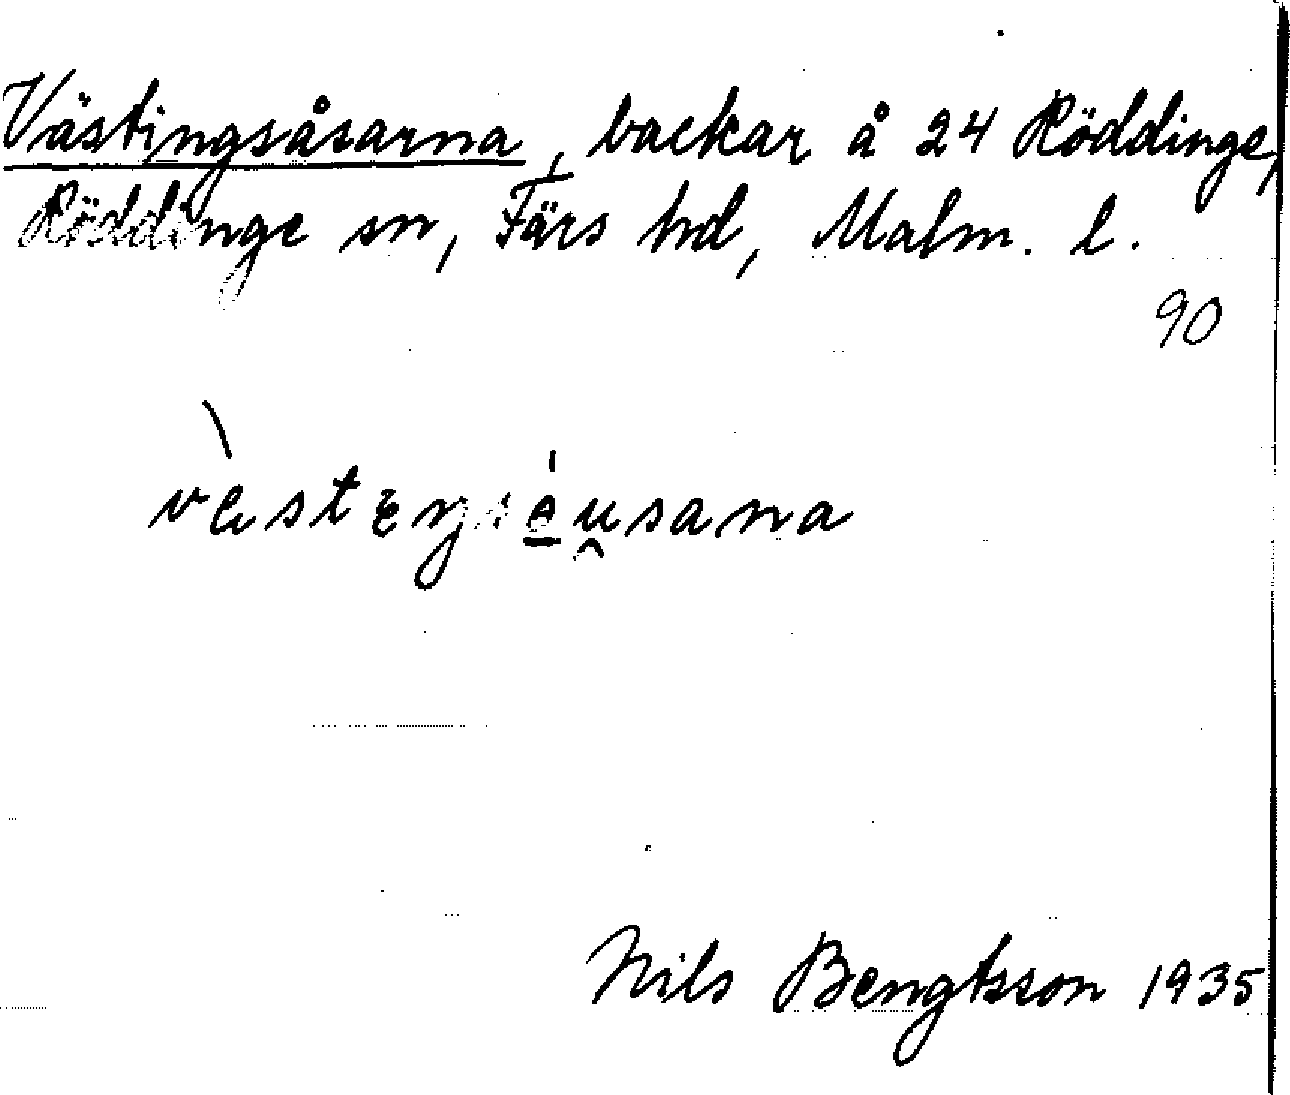 Västingsåsarna, backar å 24 Röddinge,
Röddinge sn, Färs hd, Malm. l.
90
vèstεŋsèu̯sana
Nils Bengtsson 1935